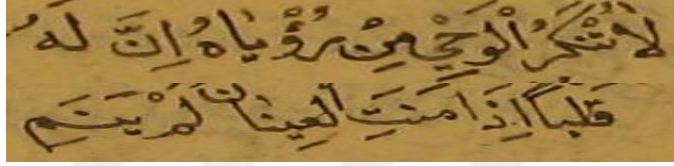 لَا تُنْكَرُ الْوَحْيَ مِنْ رُؤْيَاهُ اِنَّ لَهُ
قَلْباً اِذَا مَنَتِ الْعِينَانِ لَمْ يَنَمِ